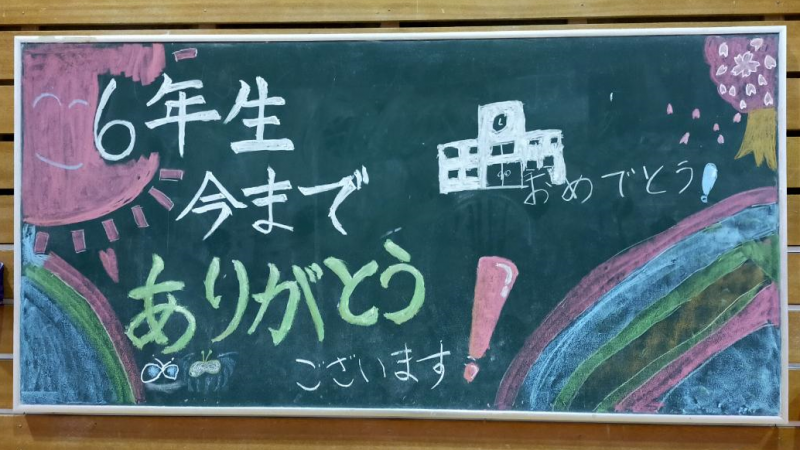 6年生
今まで
ありがとう
ございます!
おめでとう!